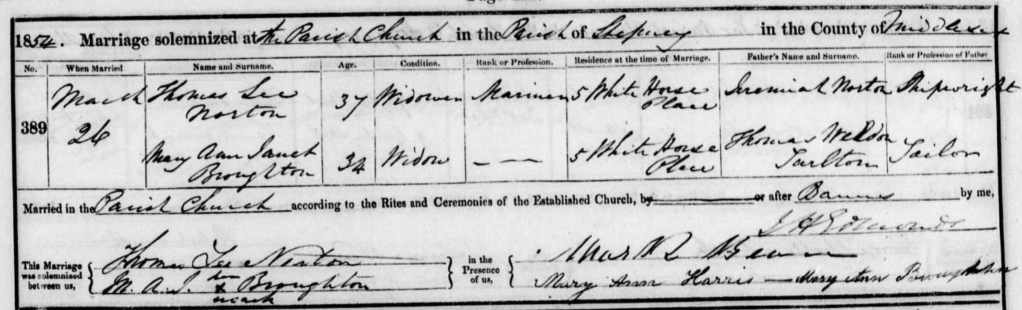 1854. Marriage solemnized at the Parish Church in the Parish of Stepney in the County of Middlesex
No. When Married Name and Surname. Age. Condition. Rank or Profession. Residence at the time of Marriage. Father's Name and Surname. Rank or Profession of Father
389 March 26 Thomas Lee Norton 37 Widower Mariner 5 White Horse Place Jeremiah Norton Shipwright
Mary Ann Janet Broughton 34 Widow — — 5 White Horse Place Thomas Weldon Tarlton Tailor
Married in the Parish Church according to the Rites and Ceremonies of the Established Church, by or after Banns by me,
J H Edmonds
This Marriage was solemnized between us, Thomas Lee Norton in the Presence of us,
M. A. J. Broughton her x mark Mary Ann Harris — Mary Ann Broughton